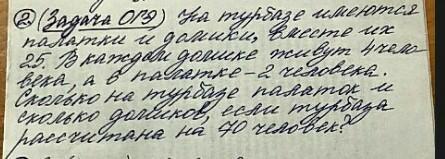 ② (Задача ОГЭ) На турбазе имеются
палатки и домики, вместе их
25. В каждом домике живут 4 чело-
века, а в палатке - 2 человека.
Сколько на турбазе палаток и
сколько домиков, если турбаза
рассчитана на 70 человек?